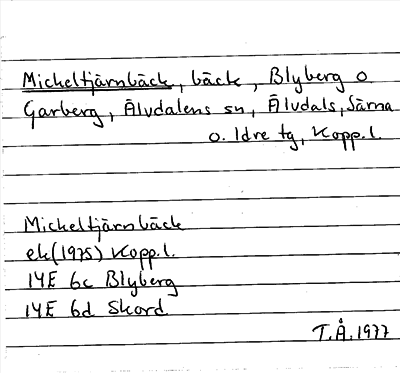 Micheltjärnbäck, bäck, Blyberg o
Garberg, Älvdalens sn, Älvdals, Särna
o. Idre tg, Kopp.l.
Micheltjärnbäck
ek(1975) Kopp.l.
14E 6c Blyberg
14E 6d Skord
T.Å.1977